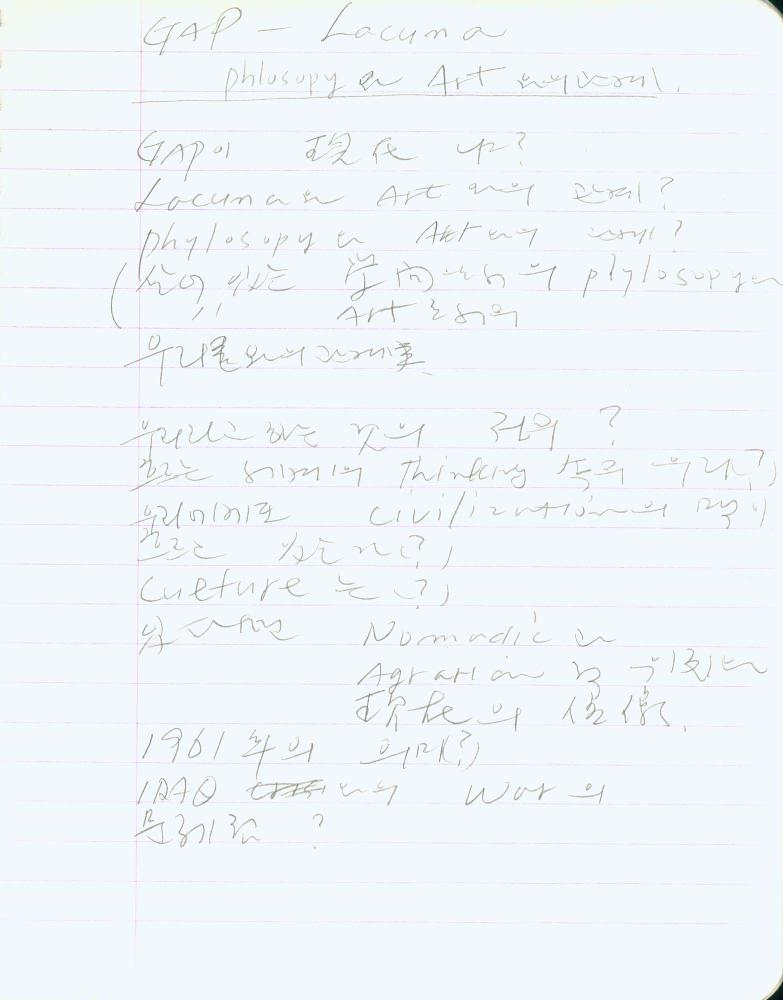 GAP - Lacuna
phlosopy와 Art 와의 관계.
GAP이 現在 나?
Lacuna와 Art 와의 관계?
phylosopy와 Art와의 관계?
있는 学问으로서의 phylosopy와
Art로서의
우리들와의 관계
우리라고 하는 것의 정의 ?
흐르는 세계의 Thinking 속의 우리(?)
우리에게도 civilization의 맥이
흐르고 있는가(?)
Culture 는(?)
있다면 Nomadic 과
Agrarian 을
現在의
1961年의 의미(?)
IRAQ 와의 War의
문제점 ?